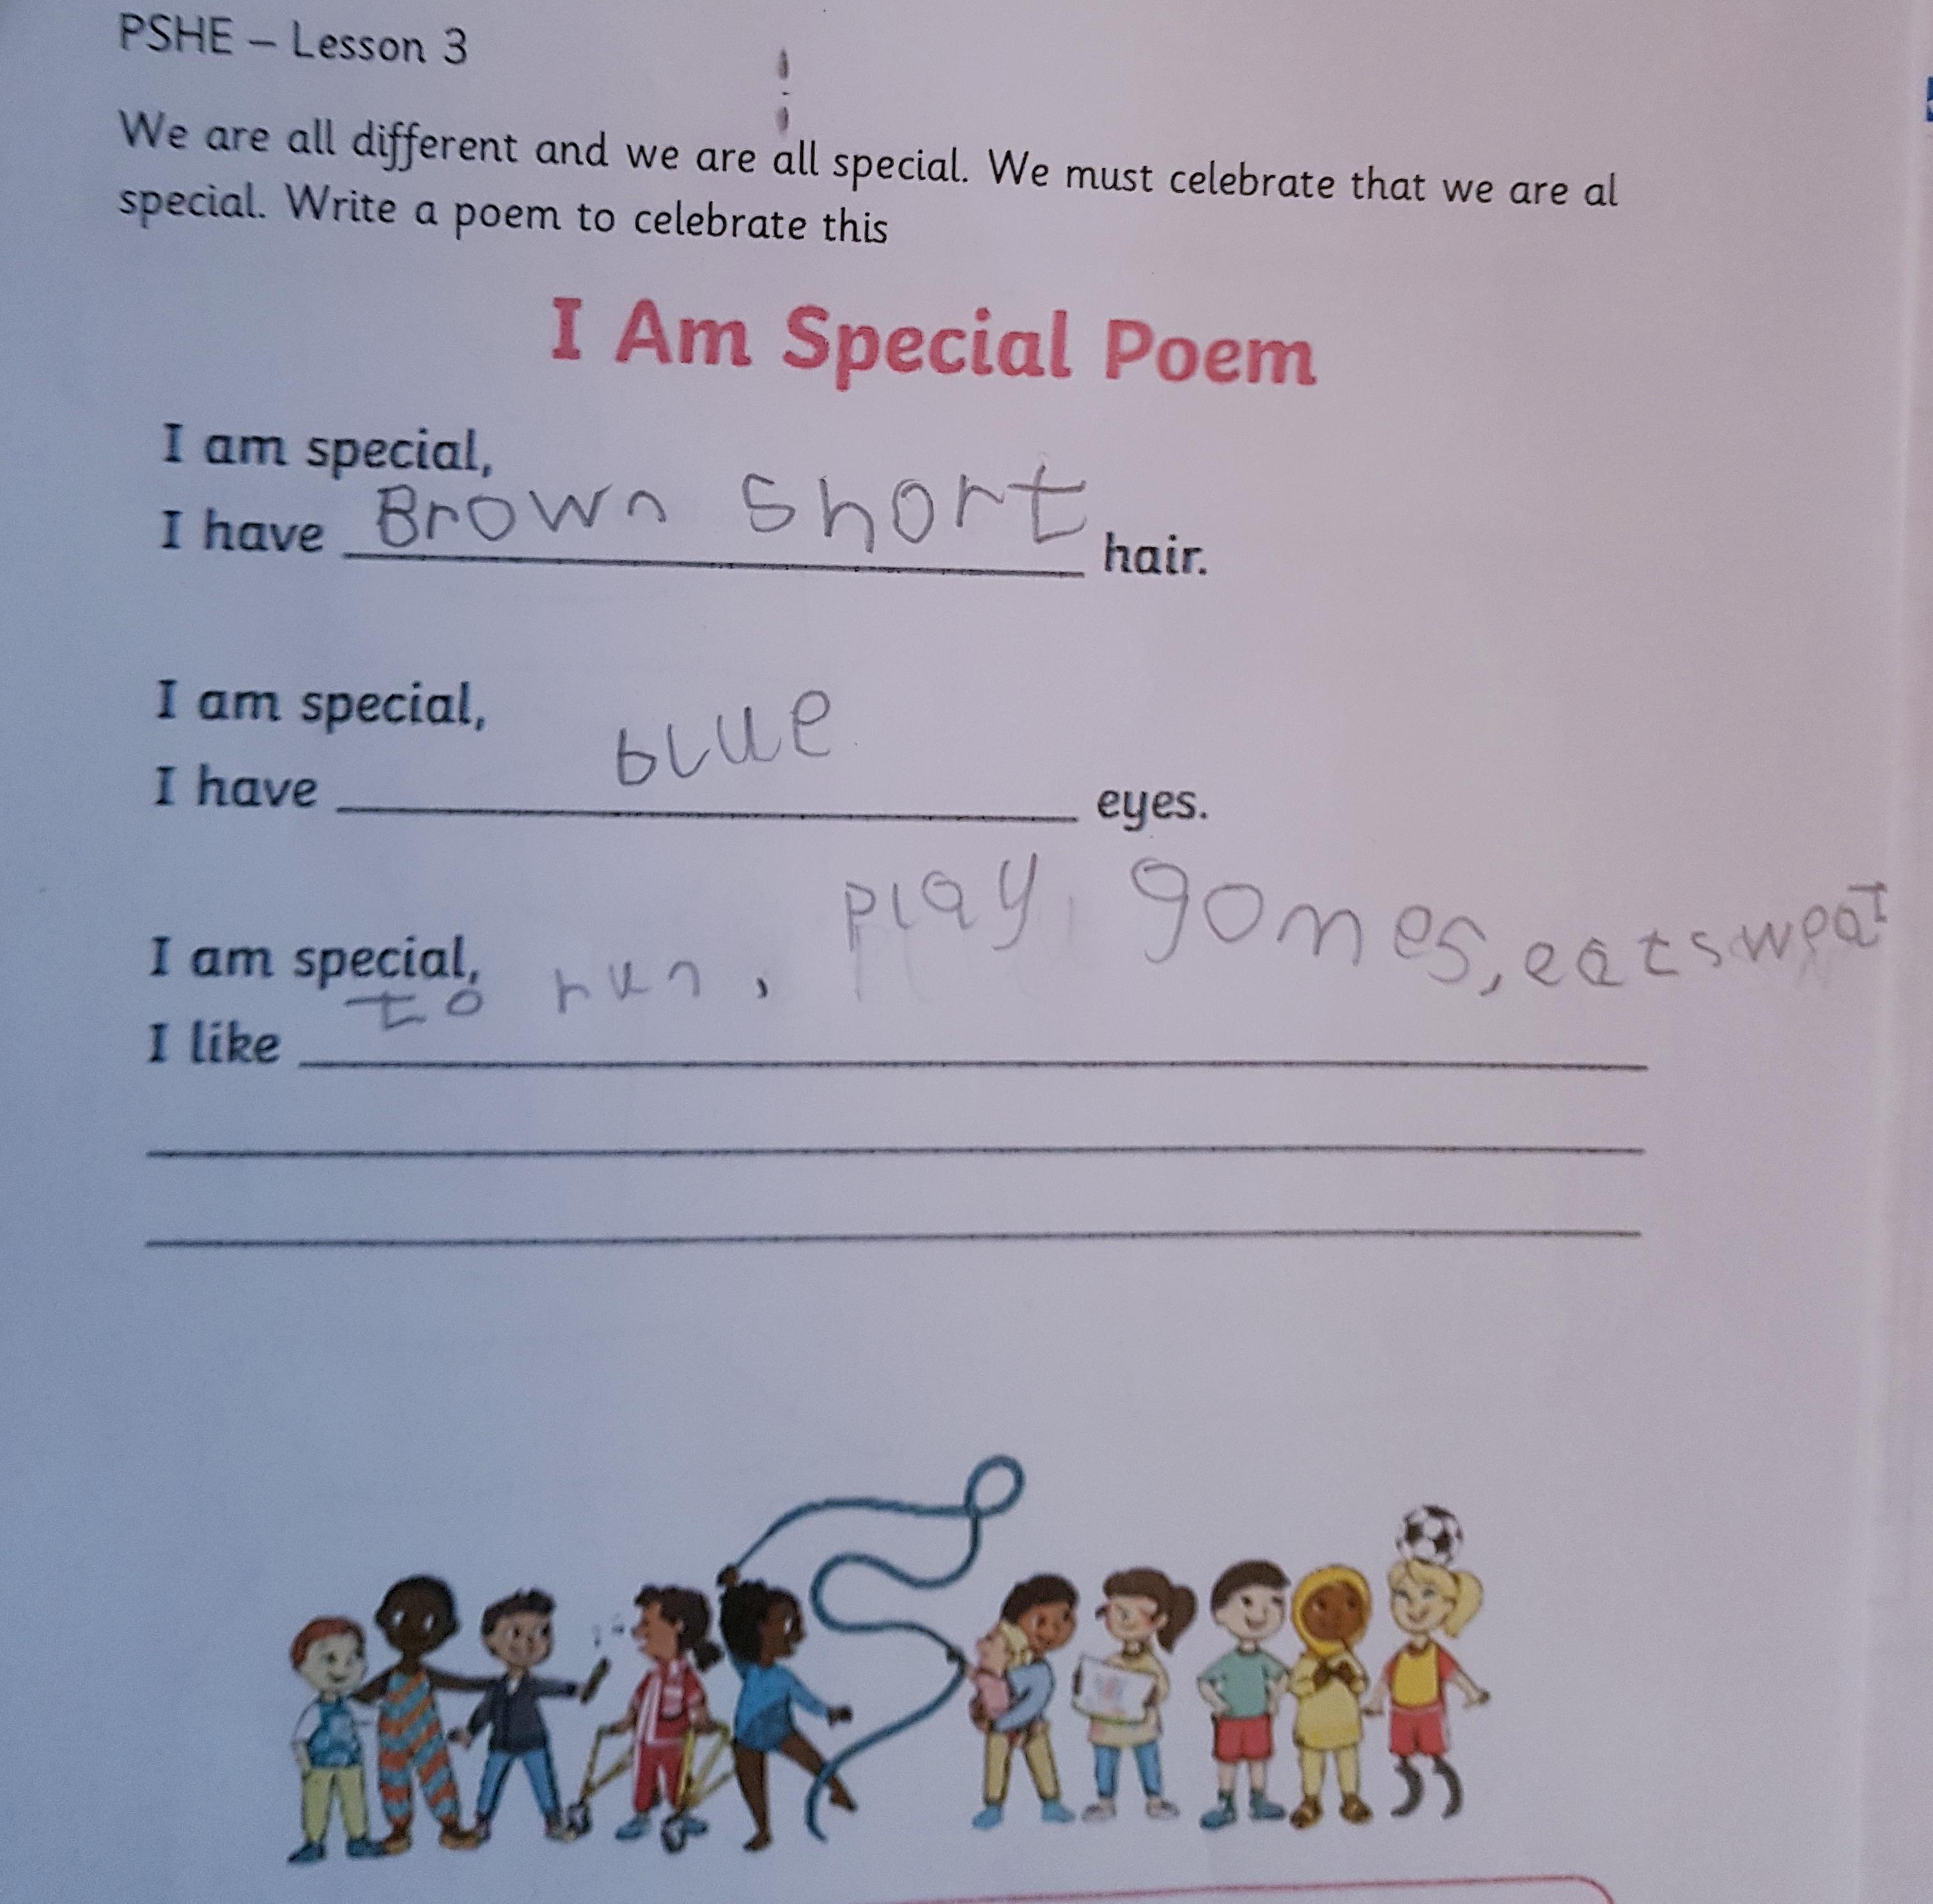 PSHE – Lesson 3
We are all different and we are all special. We must celebrate that we are al
special. Write a poem to celebrate this
I Am Special Poem
I am special,
I have Brown short hair.
I am special,
I have blue eyes.
I am special,
I like to run, play, gomes, eat sweat